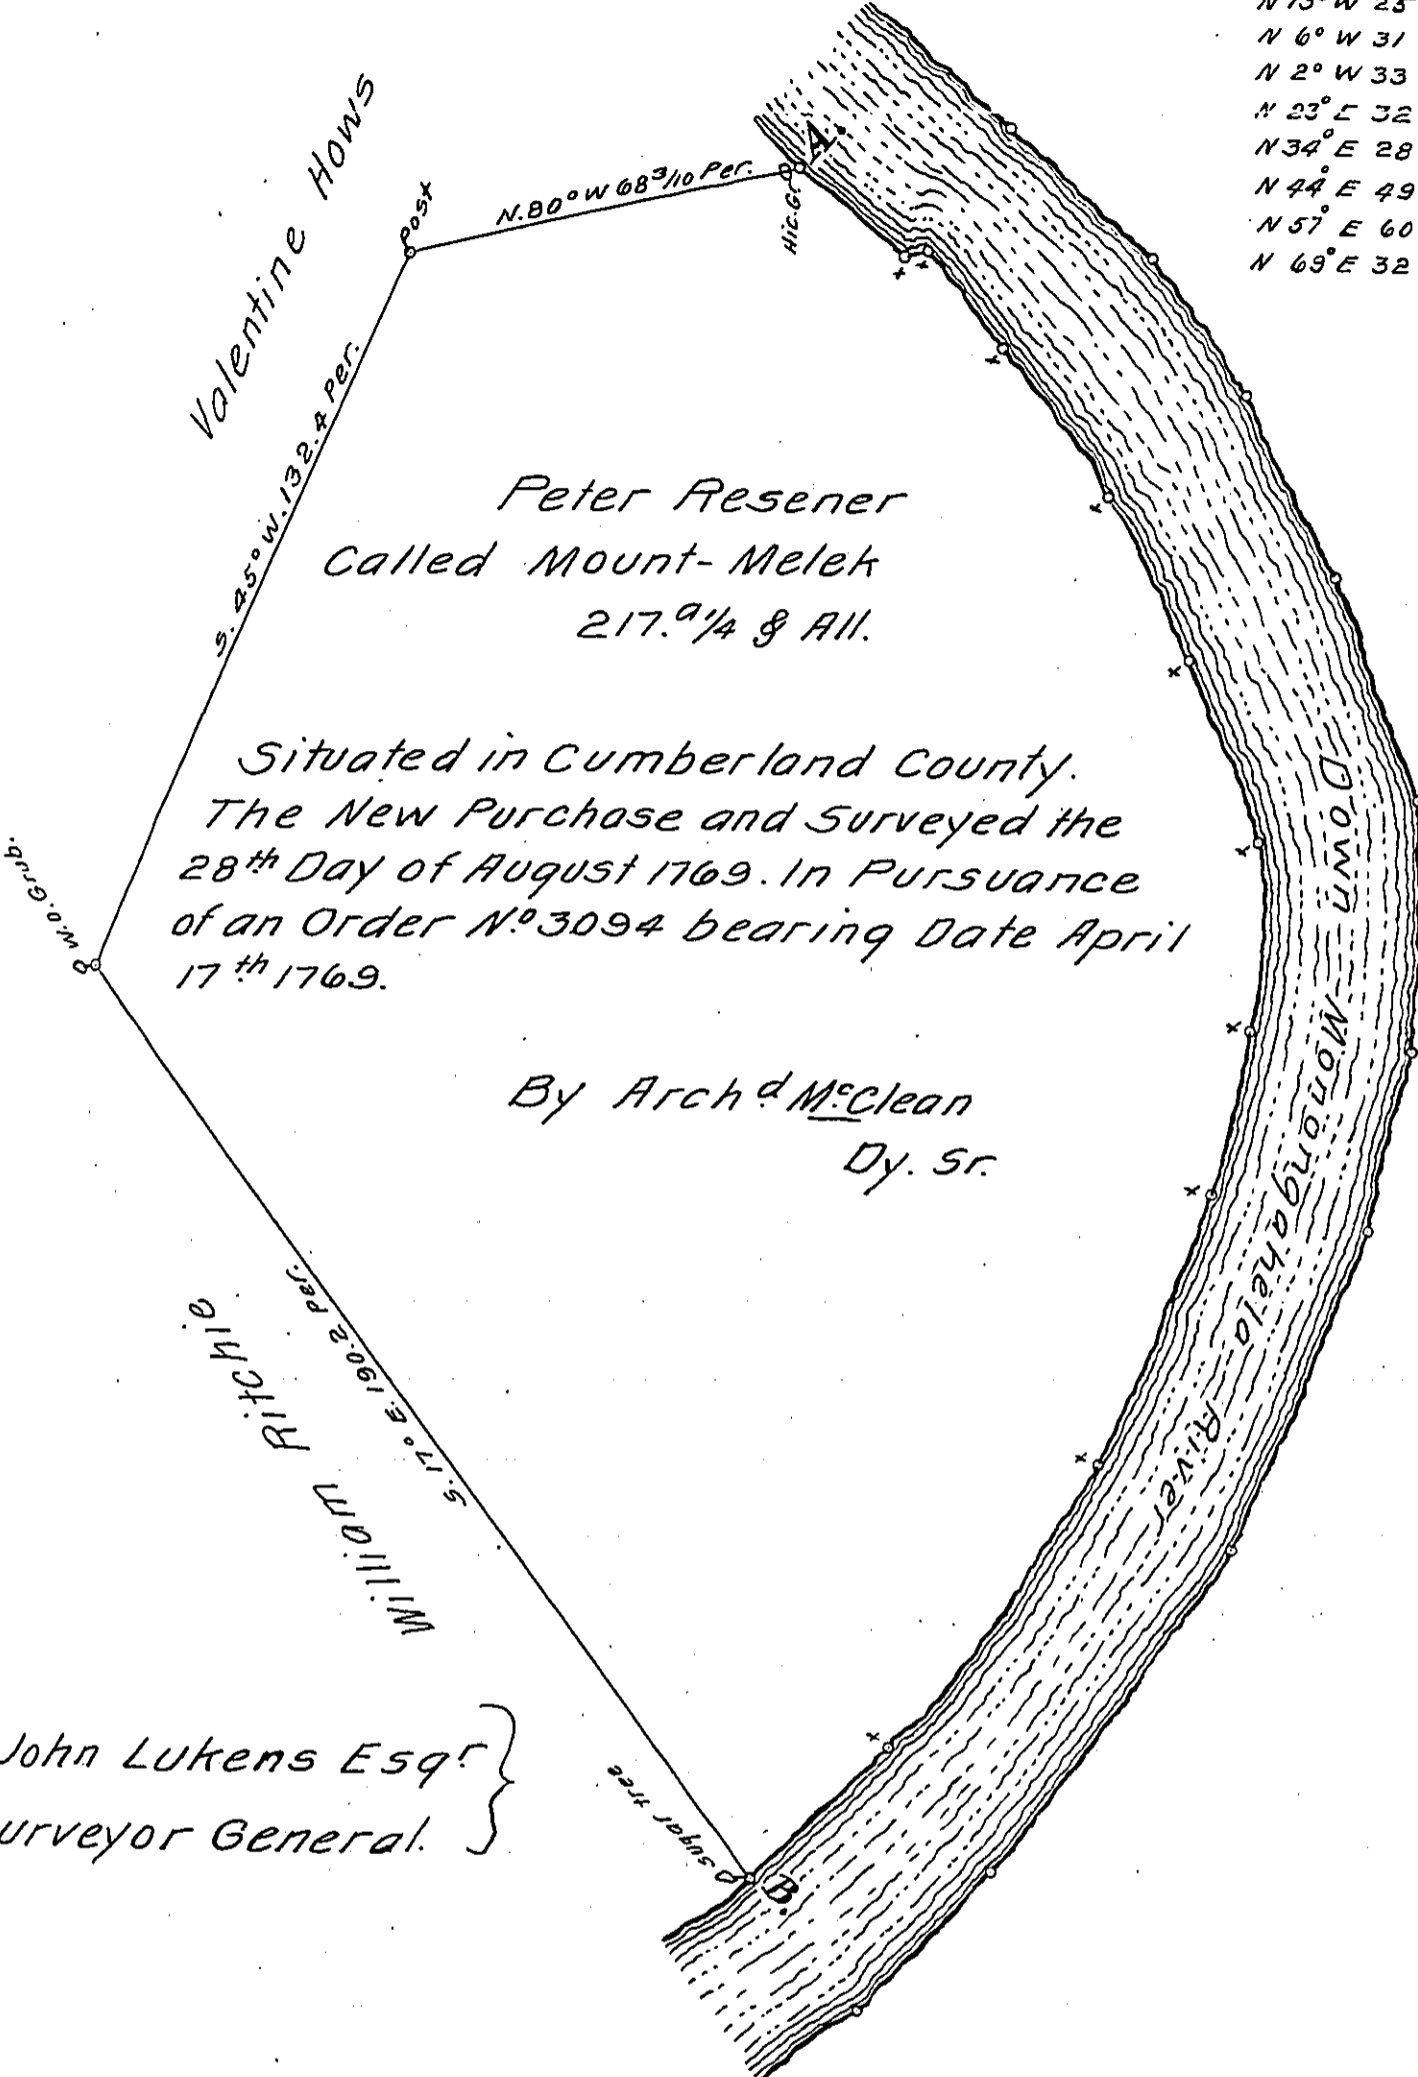 N 6° W 31
N 2° W 33
N 23° E 32
N 34° E 28
N 44° E 49
N 57° E 60
N 69° E 32
Valentine Hows
Post
N. 80° W 68 3/10 Per.
Hic. Gr.
A.
S. 45° W. 132.4 Per.
Peter Resener
Called Mount-Melek
217.ª 1/4 & All.
Situated in Cumberland County.
The New Purchase and Surveyed the
28th Day of August 1769. In Pursuance
of an Order No. 3094 bearing Date April
17th 1769.
W.O. Grub.
Down Monongahela River
By Archd McClean
Dy. Sr.
S. 17° E. 190.2 Per.
William Ritchie
John Lukens Esqr
urveyor General.
Sugar tree
B.